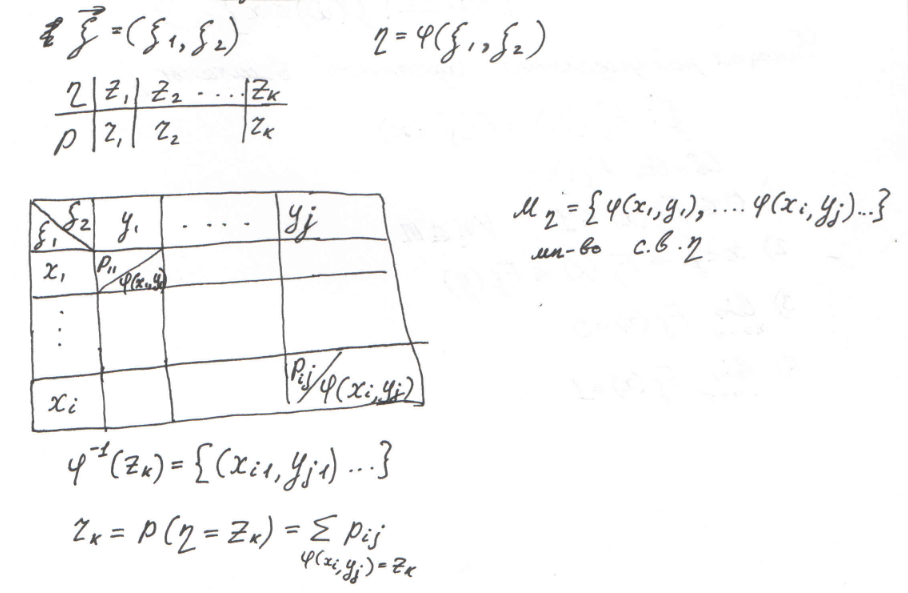 ξ⃗ = (ξ₁, ξ₂)
η = φ(ξ₁, ξ₂)
η | z₁ | z₂ .... | zₖ
p | r₁ | r₂ | rₖ
ξ₁ \ ξ₂ | y₁ | .... | yj
x₁ | p₁₁ / φ(x₁,y₁)
⋮
xi | pij / φ(xi,yj)
Mη = {φ(x₁,y₁), .... φ(xi, yj)...}
мн-во с.в. η
φ⁻¹(zₖ) = {(xi1, yj1) ...}
rₖ = p(η = zₖ) = Σ pij
φ(xi,yj) = zₖ